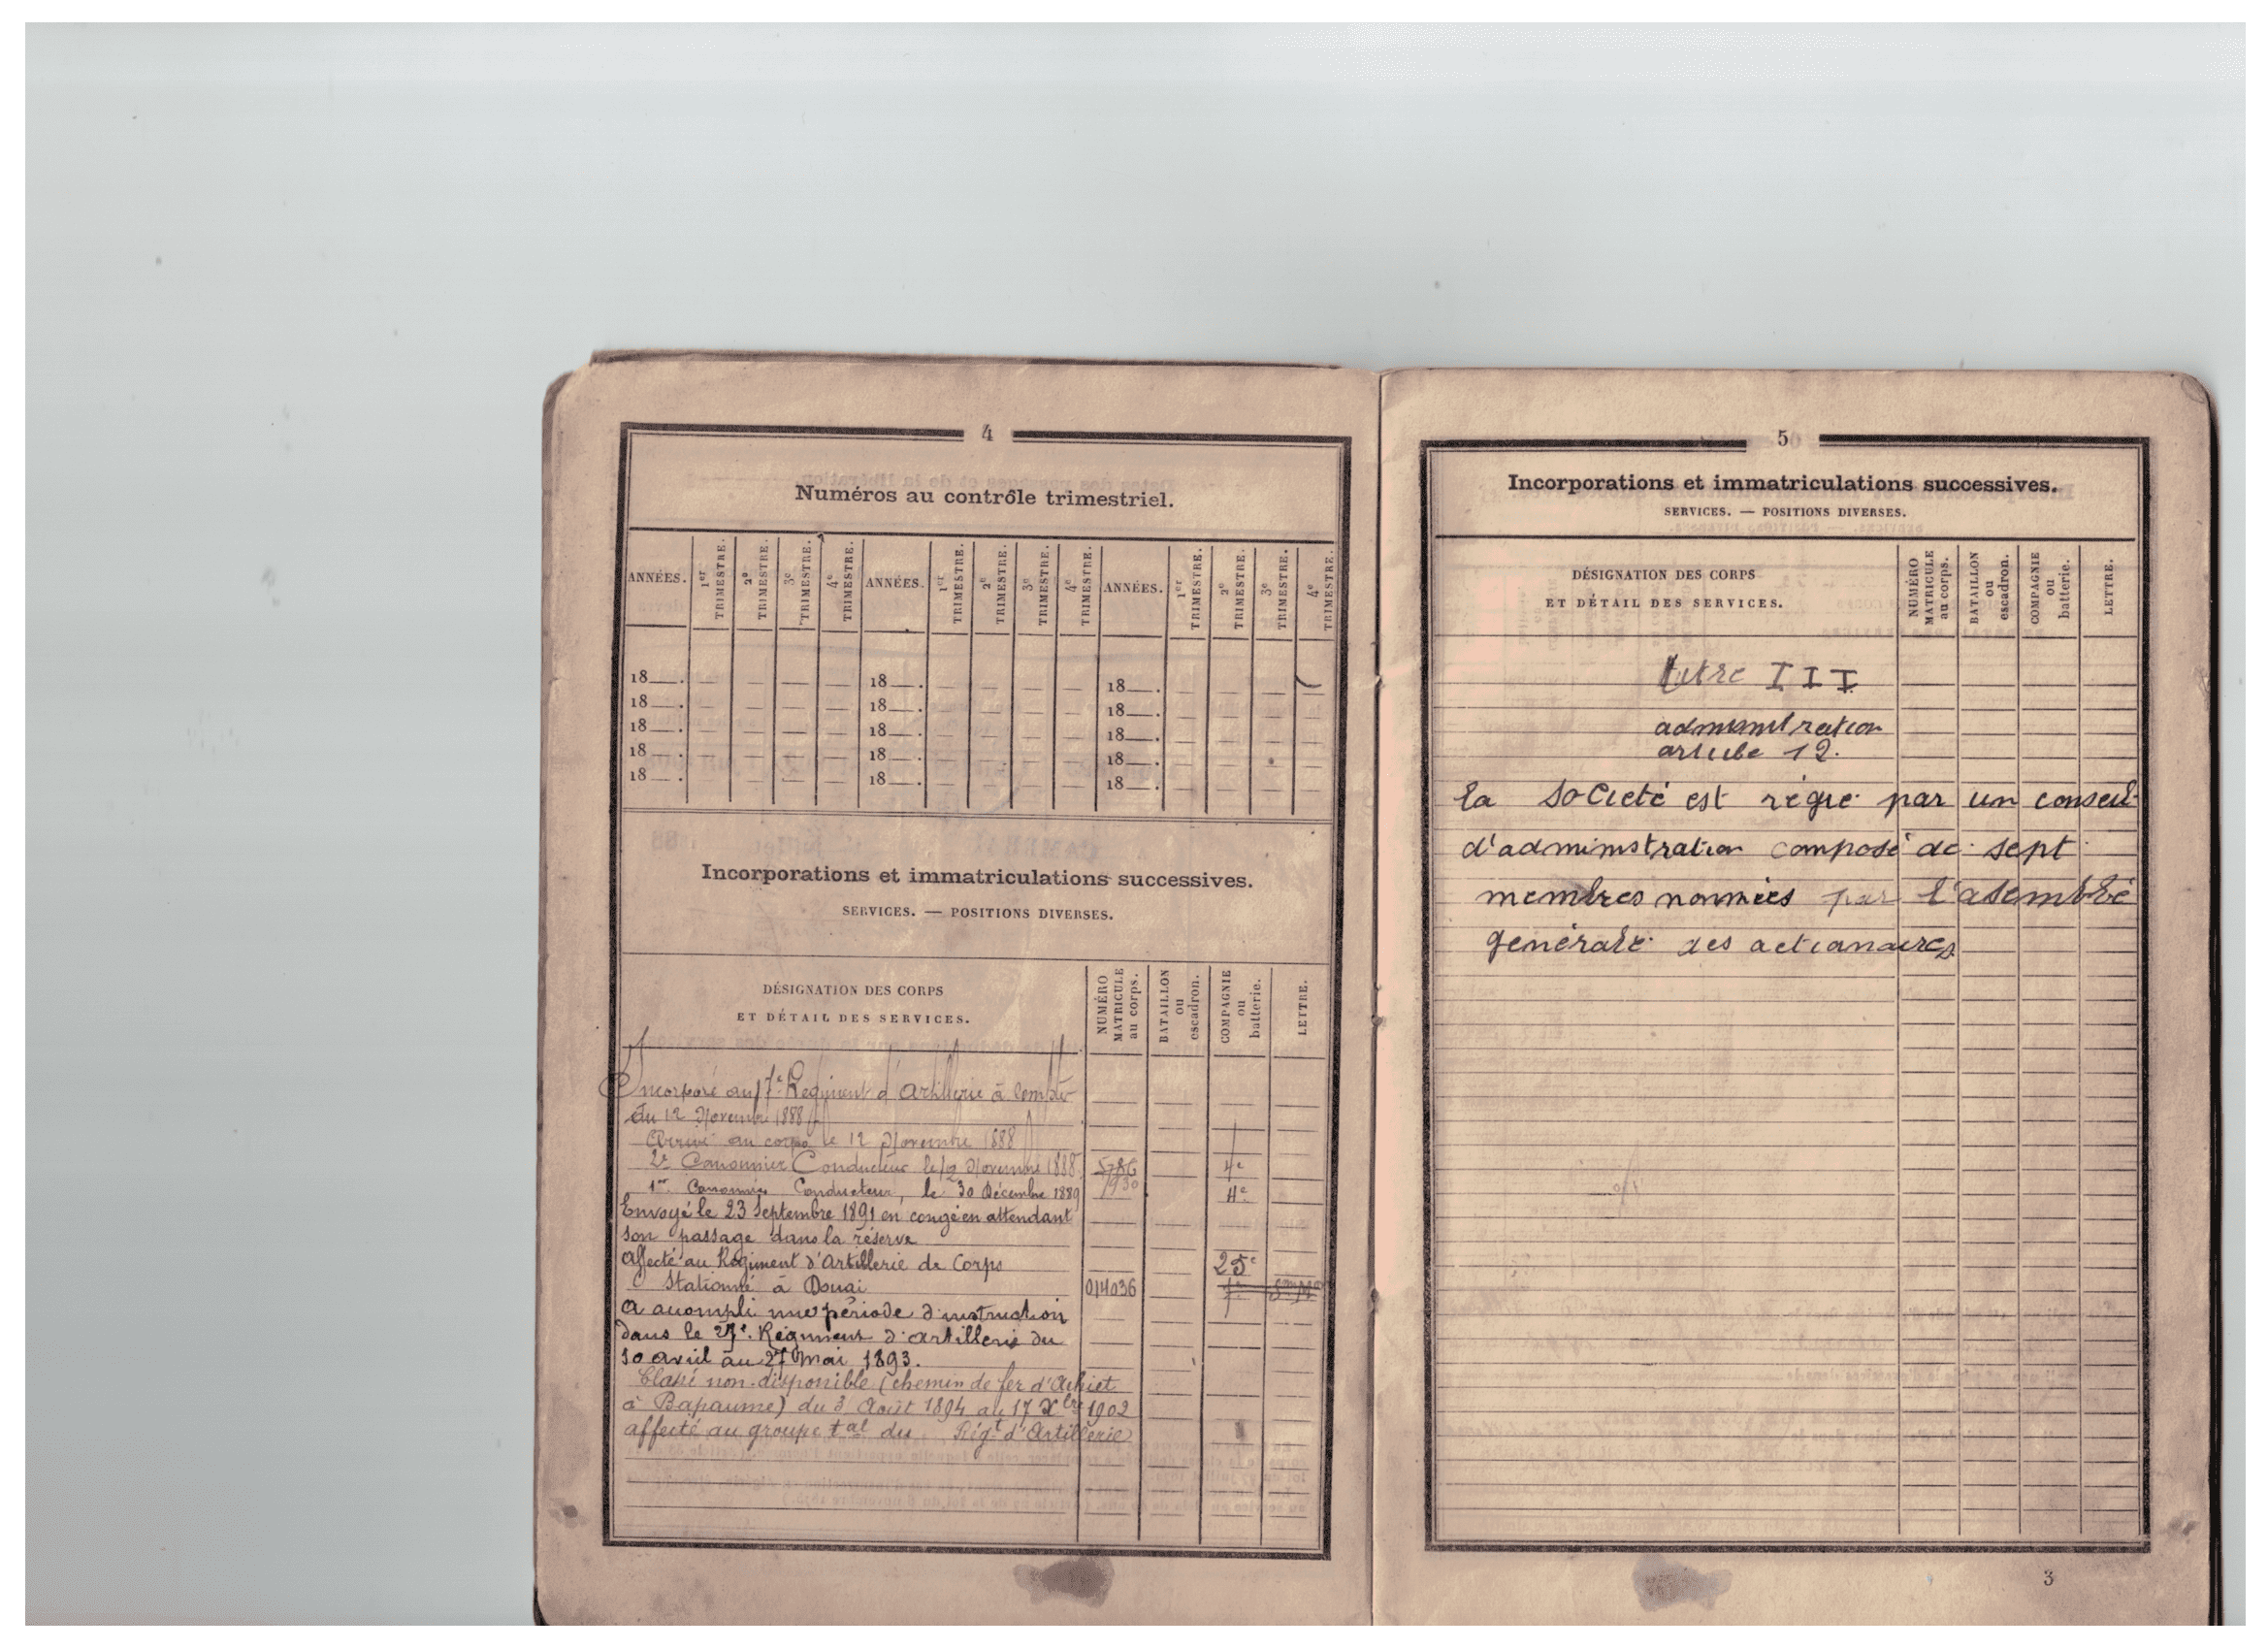 4
Numéros au contrôle trimestriel.
ANNÉES. 1er TRIMESTRE. 2e TRIMESTRE. 3e TRIMESTRE. 4e TRIMESTRE. ANNÉES. 1er TRIMESTRE. 2e TRIMESTRE. 3e TRIMESTRE. 4e TRIMESTRE. ANNÉES. 1er TRIMESTRE. 2e TRIMESTRE. 3e TRIMESTRE. 4e TRIMESTRE.
18__. 18__. 18__.
18__. 18__. 18__.
18__. 18__. 18__.
18__. 18__. 18__.
18__. 18__. 18__.
Incorporations et immatriculations successives.
SERVICES. — POSITIONS DIVERSES.
DÉSIGNATION DES CORPS
ET DÉTAIL DES SERVICES.
NUMÉRO MATRICULE au corps.
BATAILLON ou escadron.
COMPAGNIE ou batterie.
LETTRE.
Incorporé au 17e Régiment d'Artillerie à compter
du 12 Novembre 1888
Arrivé au corps le 12 Novembre 1888
2e Canonnier Conducteur le 12 Novembre 1888 5786 4e
1er Canonnier Conducteur, le 30 Décembre 1889 7930 4e
Envoyé le 23 Septembre 1891 en congé en attendant
son passage dans la réserve
Affecté au Régiment d'Artillerie de Corps 25e
Stationné à Douai 014036
A accompli une période d'instruction
dans le 27e Régiment d'artillerie du
10 avril au 27 Mai 1893.
Classé non-disponible (chemin de fer d'Achiet
à Bapaume) du 3 Août 1894 au 17 Xbre 1902
affecté au groupe tal du Régt d'Artillerie
5
Incorporations et immatriculations successives.
SERVICES. — POSITIONS DIVERSES.
DÉSIGNATION DES CORPS
ET DÉTAIL DES SERVICES.
NUMÉRO MATRICULE au corps.
BATAILLON ou escadron.
COMPAGNIE ou batterie.
LETTRE.
titre III
administration
article 12.
la societé est régie par un conseil
d'administration composé de sept
membres nommées par l'asemblé
generale des actionaires
3